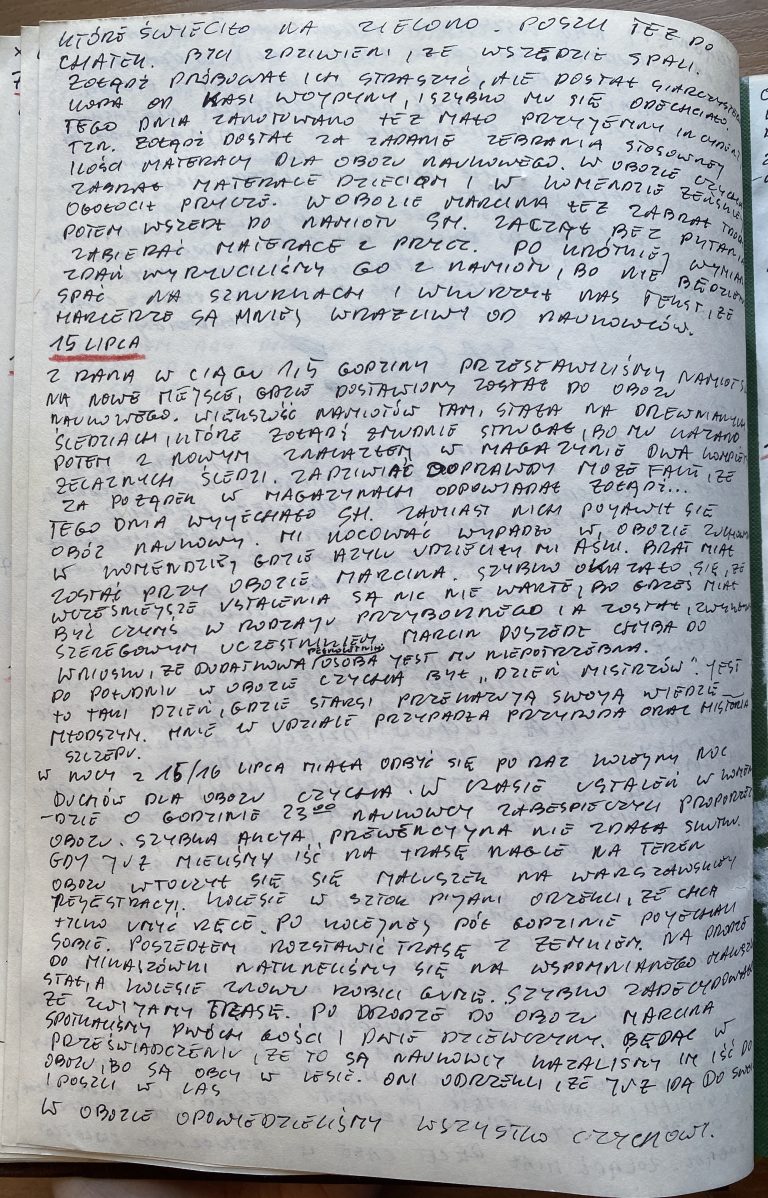 KTÓRE ŚWIECIŁO NA ZIELONO. POSZLI TEŻ DO
CHATEK. BYLI ZDZIWIENI, ŻE WSZĘDZIE SPALI.
ŻOŁĄDŹ PRÓBOWAŁ ICH STRASZYĆ, ALE DOSTAŁ SIARCZYSTEGO
KOPA OD KASI WOJDYNY, I SZYBKO MU SIĘ ODECHCIAŁO.
TEGO DNIA ZANOTOWANO TEŻ MAŁO PRZYJEMNY INCYDENT
TZN. ŻOŁĄDŹ DOSTAŁ ZA ZADANIE ZEBRANIA STOSOWNEJ
ILOŚCI MATERACY DLA OBOZU NAUKOWEGO. W OBOZIE CZYCHA
ZABRAŁ MATERACE DZIECIOM I W KOMENDZIE ŻEŃSKIEJ
OGOŁOCIŁ PRYCZE. W OBOZIE MARCINA TEŻ ZABRAŁ TROCHĘ
POTEM WSZEDŁ DO NAMIOTU SH. ZACZĄŁ BEZ PYTANIA
ZABIERAĆ MATERACE Z PRYCZ. PO KRÓTKIEJ WYMIANIE
ZDAŃ WYRZUCILIŚMY GO Z NAMIOTU, BO NIE BĘDZIEMY
SPAĆ NA SZNURKACH I WKURZYŁ NAS TEKST, ŻE
HARCERZE SĄ MNIEJ WRAŻLIWI OD NAUKOWCÓW.
15 LIPCA
Z RANA W CIĄGU 1,5 GODZINY PRZESTAWILIŚMY NAMIOT SH
NA NOWE MIEJSCE, GDZIE DOSTAWIONY ZOSTAŁ DO OBOZU
NAUKOWEGO. WIĘKSZOŚĆ NAMIOTÓW TAM, STAŁA NA DREWNIANYCH
ŚLEDZIACH, KTÓRE ŻOŁĄDŹ ŻMUDNIE STRUGAŁ, BO MU KAZANO
POTEM Z NOWYM ZNALAZŁEM W MAGAZYNIE DWA KOMPLETY
ŻELAZNYCH ŚLEDZI. ZADZIWIAĆ DOPRAWDY MOŻE FAKT, ŻE
ZA POŻĄDEK W MAGAZYNACH ODPOWIADAŁ ŻOŁĄDŹ...
TEGO DNIA WYJECHAŁO SH. ZAMIAST NICH POJAWIŁ SIĘ
OBÓZ NAUKOWY. MI NOCOWAĆ WYPADŁO W OBOZIE ZUCHOWYM
W KOMENDZIE, GDZIE AZYLU UDZIELIŁY MI AŚKI. BRAT MIAŁ
ZOSTAĆ PRZY OBOZIE MARCINA. SZYBKO OKAZAŁO SIĘ, ŻE
WCZEŚNIEJSZE USTALENIA SĄ NIC NIE WARTE, BO GRZEŚ MIAŁ
BYĆ CZYMŚ W RODZAJU PRZYBOCZNEGO, A ZOSTAŁ, ZWYKŁYM
SZEREGOWYM UCZESTNIKIEM. MARCIN DOSZEDŁ CHYBA DO
PEŁNOLETNIA
WNIOSKU, ŻE DODATKOWA OSOBA JEST MU NIEPOTRZEBNA.
PO POŁUDNIU W OBOZIE CZYCHA BYŁ „DZIEŃ MISTRZÓW”. JEST
TO TAKI DZIEŃ, GDZIE STARSI PRZEKAZUJĄ SWOJĄ WIEDZĘ
MŁODSZYM. MNIE W UDZIALE PRZYPADŁA PRZYRODA ORAZ HISTORIA
SZCZEPU.
W NOCY Z 15/16 LIPCA MIAŁA ODBYĆ SIĘ PO RAZ KOLEJNY NOC
DUCHÓW DLA OBOZU CZYCHA. W CZASIE USTALEŃ W KOMEN
-DZIE O GODZINIE 23⁰⁰ NAUKOWCY ZABESPIECZYLI PROPORZEC
OBOZU. SZYBKA AKCJA PREWENCYJNA NIE ZDAŁA SKUTKU.
GDY JUŻ MIELIŚMY IŚĆ NA TRASĘ NAGLE NA TEREN
OBOZU WTOCZYŁ SIĘ SIĘ MALUSZEK NA WARSZAWSKIEJ
REJESTRACJI. KOLESIE W SZTOK PIJANI ORZEKLI, ŻE CHCĄ
TYLKO UMYĆ RĘCE. PO KOLEJNEJ PÓŁ GODZINIE POJECHALI
SOBIE. POSZEDŁEM ROZSTAWIĆ TRASĘ Z ZEMKIEM. NA DRODZE
DO MIKASZÓWKI NATKNELIŚMY SIĘ NA WSPOMNIANEGO MALUSZKA
STAŁ, A KOLESIE ZNOWU ROBILI GUMĘ. SZYBKO ZADECYDOWALI
ŻE ZWIJAMY TRASĘ. PO DRODZE DO OBOZU MARCINA
SPOTKALIŚMY DWÓCH GOŚCI I DWIE DZIEWCZYNY. BĘDĄC W
PRZEŚWIADCZENIU, ŻE TO SĄ NAUKOWCY KAZALIŚMY IM IŚĆ DO
OBOZU, BO SĄ OBCY W LESIE. ONI ODRZEKLI, ŻE JUŻ IDĄ DO SWOJEGO
I POSZLI W LAS
W OBOZIE OPOWIEDZIELIŚMY WSZYSTKO CZYCHOWI.